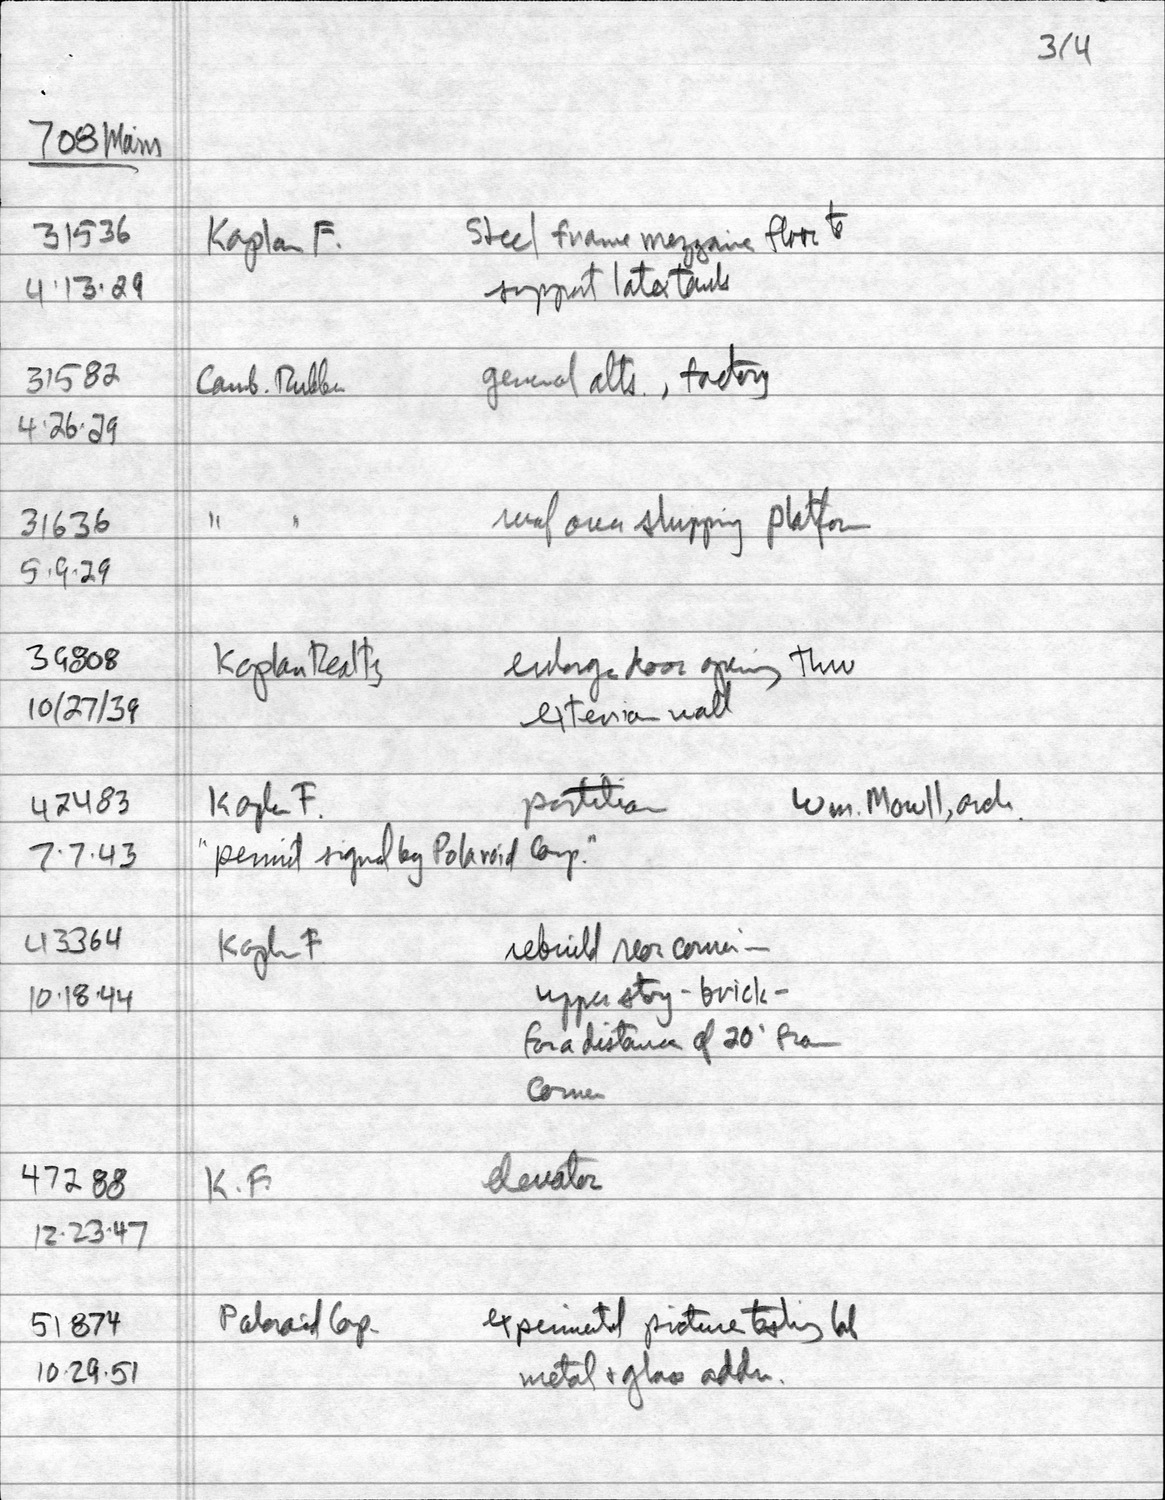 3/4
708 Main
31536 Kaplan F. Steel frame mezzanine floor to
4.13.29 support latex tanks
31582 Camb. Rubber general alts., factory
4.26.29
31636 " " roof over shipping platform
5.9.29
39808 Kaplan Realty enlarge door opening thru
10/27/39 exterior wall
42483 Kapln F. partition Wm. Mowll, arch.
7.7.43 "permit signed by Polaroid Corp."
43364 Kapln F rebuild rear corner -
10.18.44 upper story - brick -
for a distance of 20' from
corner
47288 K.F. elevator
12.23.47
51874 Polaroid Corp. experimental picture testing lab
10.29.51 metal + glass addn.